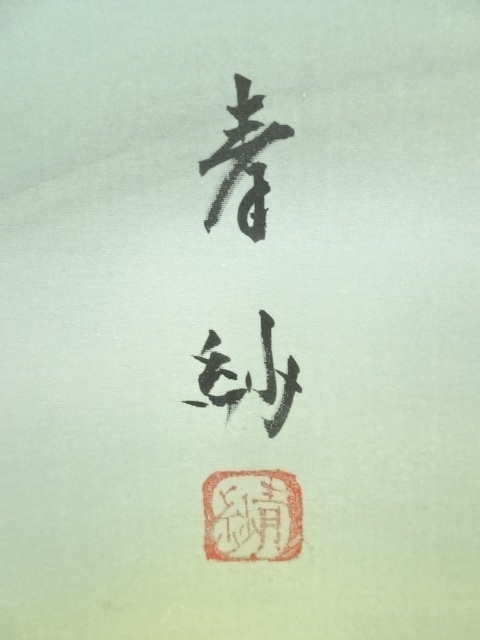 青紗
青紗